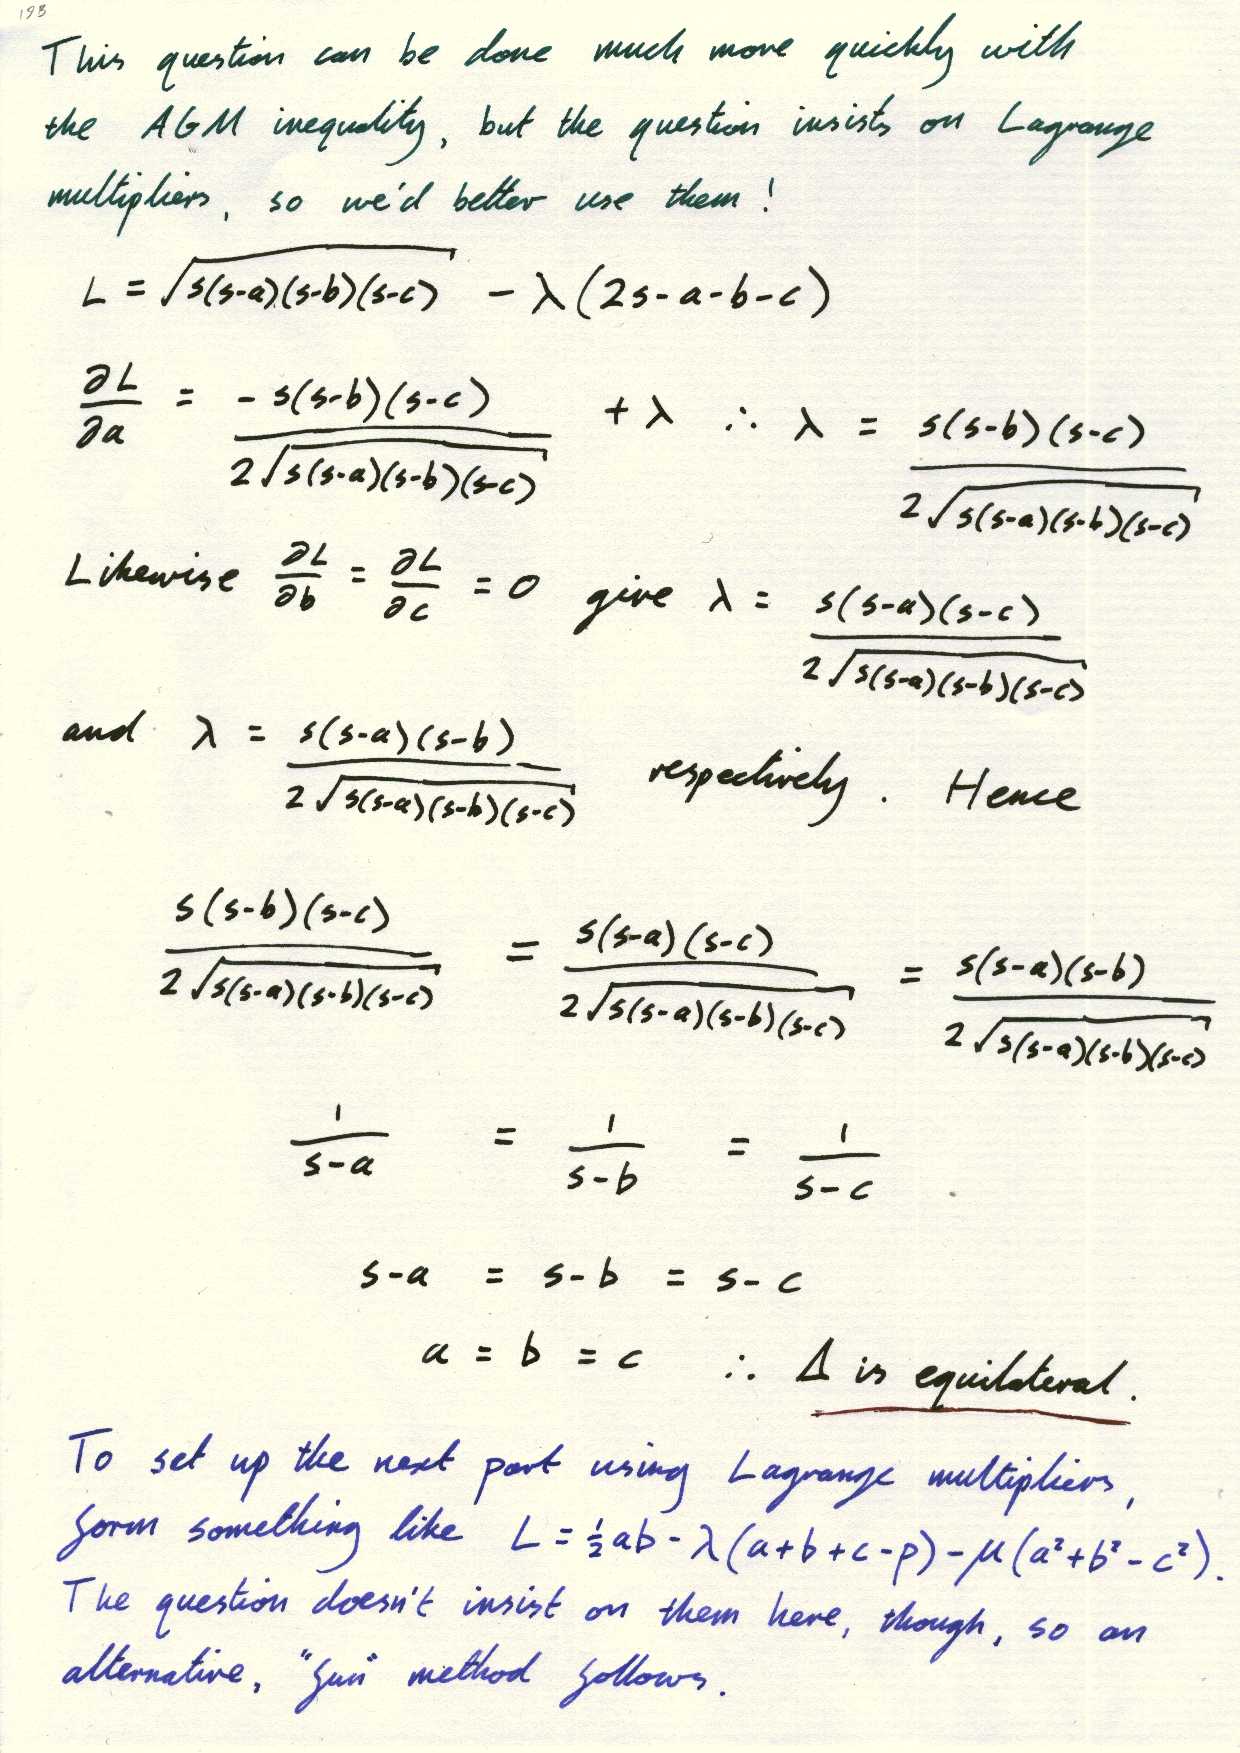 193
This question can be done much more quickly with
the AGM inequality, but the question insists on Lagrange
multipliers, so we'd better use them!
L = √(s(s-a)(s-b)(s-c)) - λ(2s-a-b-c)
∂L/∂a = -s(s-b)(s-c) / 2√(s(s-a)(s-b)(s-c)) + λ ∴ λ = s(s-b)(s-c) / 2√(s(s-a)(s-b)(s-c))
Likewise ∂L/∂b = ∂L/∂c = 0 give λ = s(s-a)(s-c) / 2√(s(s-a)(s-b)(s-c))
and λ = s(s-a)(s-b) / 2√(s(s-a)(s-b)(s-c)) respectively. Hence
s(s-b)(s-c) / 2√(s(s-a)(s-b)(s-c)) = s(s-a)(s-c) / 2√(s(s-a)(s-b)(s-c)) = s(s-a)(s-b) / 2√(s(s-a)(s-b)(s-c))
1/(s-a) = 1/(s-b) = 1/(s-c)
s-a = s-b = s-c
a = b = c ∴ Δ is equilateral.
To set up the next part using Lagrange multipliers,
form something like L = ½ab - λ(a+b+c-p) - μ(a²+b²-c²).
The question doesn't insist on them here, though, so an
alternative, "fun" method follows.